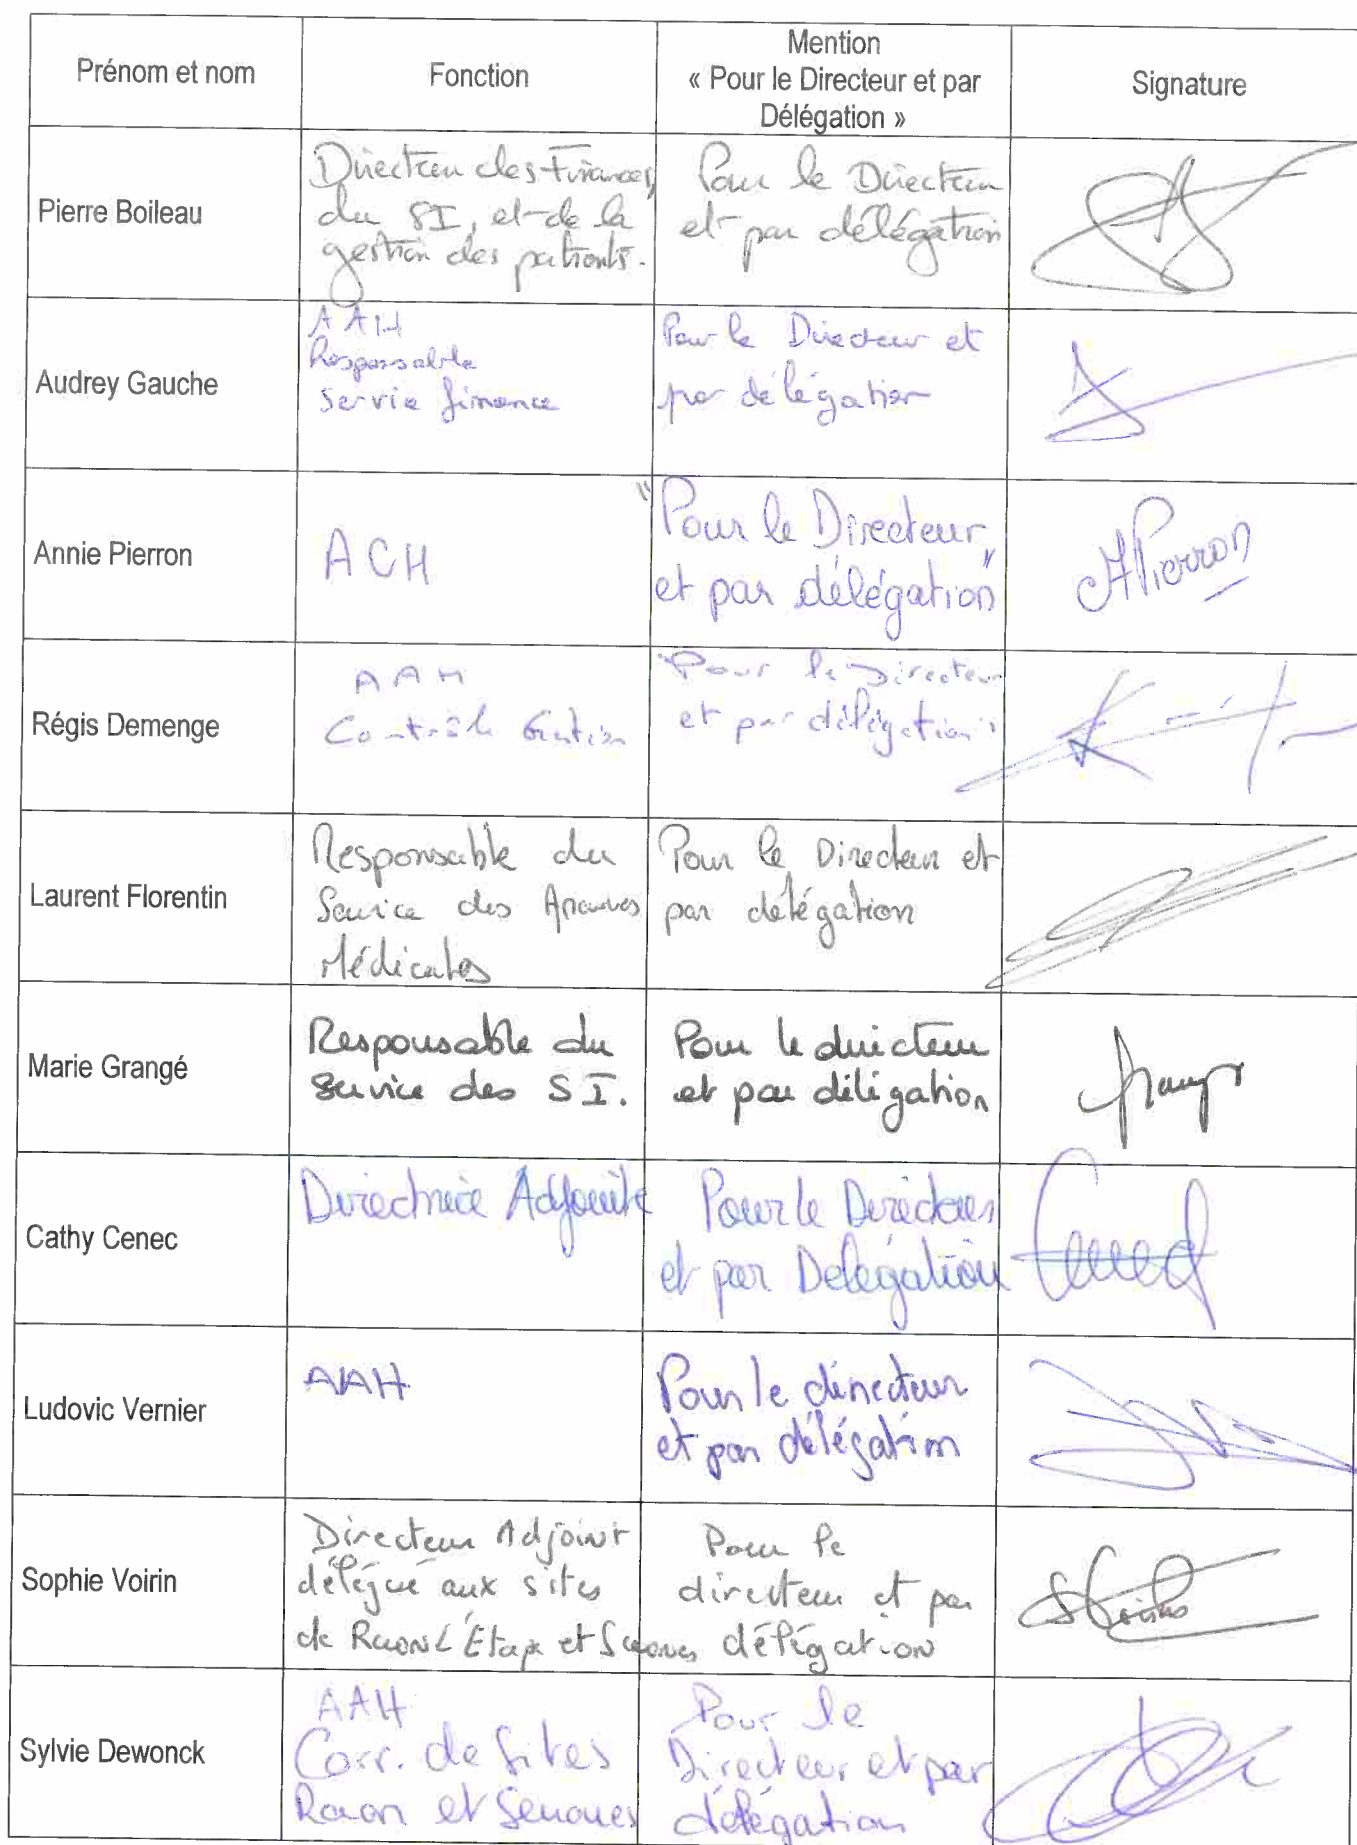 Prénom et nom
Fonction
Mention
« Pour le Directeur et par
Délégation »
Signature
Pierre Boileau
Directeur des Finances,
du SI, et de la
gestion des patients.
Pour le Directeur
et par délégation
Audrey Gauche
AAH
Responsable
Service finance
Pour le Directeur et
par délégation
Annie Pierron
ACH
"Pour le Directeur
et par délégation"
APierron
Régis Demenge
AAH
Contrôle Gestion
"Pour le Directeur
et par délégation"
Laurent Florentin
Responsable du
Service des
Médicales
Pour le Directeur et
par délégation
Marie Grangé
Responsable du
Service des SI.
Pour le directeur
et par déligation
Cathy Cenec
Directrice Adjointe
Pour le Directeur
et par Delegation
Cenec
Ludovic Vernier
AAH
Pour le directeur
et par délégation
Sophie Voirin
Directeur Adjoint
délégué aux sites
de Raon L'Etape et Senones
Pour le
directeur et par
délégation
SVoirin
Sylvie Dewonck
AAH
Corr. de Sites
Raon et Senones
Pour le
Directeur et par
délégation